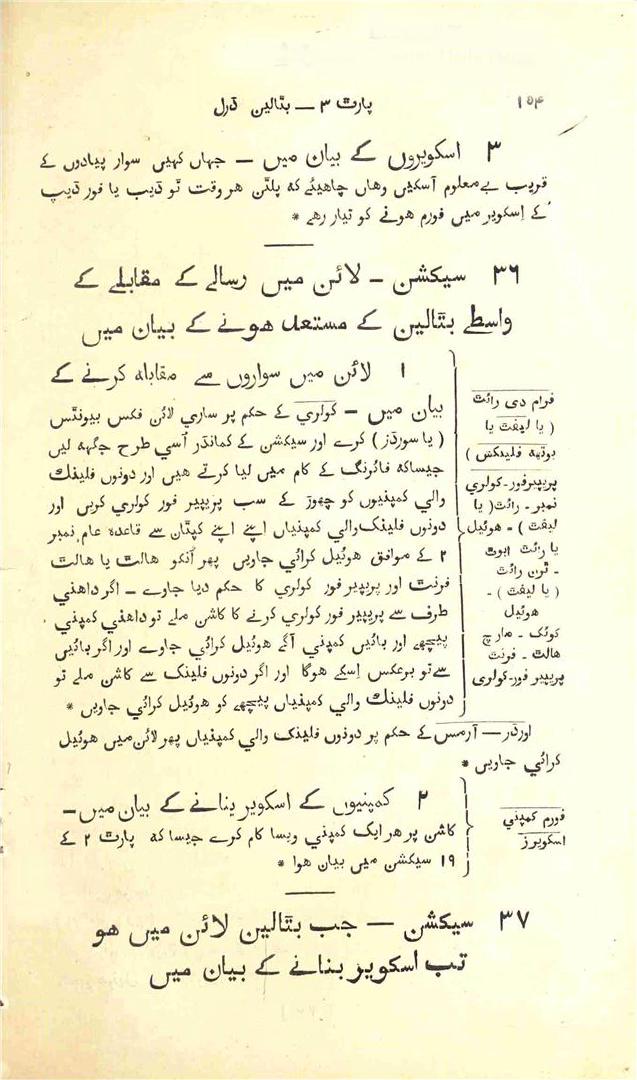 ۱۵۴
پارٹ ۳ — بٹالین ڈرل
۳ اسکویروں کے بیان میں — جہاں کہیں سوار پیادوں کے
قریب بے معلوم آسکیں وهاں چاهیئے که پلٹن هر وقت ٹو ڈیپ یا فور ڈیپ
کے اسکویر میں فورم هونے کو تیار رهے *
۳۶ سیکشن — لائن میں رسالے کے مقابلے کے
واسطے بٹالین کے مستعد هونے کے بیان میں
۱ لائن میں سواروں سے مقابله کرنے کے
بیان میں — کولري کے حکم پر ساري لائن فکس بیونٹس
(یا سورڈز) کرے اور سیکشن کے کمانڈر اُسي طرح جگہه لیں
جیساکه فائرنگ کے کام میں لیا کرتے هیں اور دونوں فلینک
والي کمپنیوں کو چھوڑ کے سب پریپیر فور کولري کریں اور
دونوں فلینک والي کمپنیاں اپنے اپنے کپتان سے قاعده عام نمبر
۲ کے موافق هوئیل کرائي جاویں پھر اُنکو هالٹ یا هالٹ
فرنٹ اور پریپیر فور کولري کا حکم دیا جاوے — اگر داهني
طرف سے پریپیر فور کولري کرنے کا کاشن ملے تو داهني کمپني
پیچھے اور بائیں کمپني آگے هوئیل کرائي جاوے اور اگر بائیں
سے تو برعکس اِسکے هوگا اور اگر دونوں فلینک سے کاشن ملے تو
دونوں فلینک والي کمپنیاں پیچھے کو هوئیل کرائي جاویں *
فرام دي رائٹ
(یا لیفٹ یا
بوتهه فلینکس)
پریپیر فور-کولري
نمبر-رائٹ (یا
لیفٹ)-هوئیل
یا رائٹ ابوٹ
-ٹرن رائٹ
(یا لیفٹ)-
هوئیل
کوئک-مارچ
هالٹ-فرنٹ
پریپیر فور-کولري
اورڈر — آرمس کے حکم پر دونوں فلینک والي کمپنیاں پھر لائن میں هوئیل
کرائي جاویں *
۲ کمپنیوں کے اسکویر بنانے کے بیان میں —
کاشن پر هر ایک کمپني ویسا کام کرے جیسا که پارٹ ۲ کے
۱۹ سیکشن میں بیان هوا *
فورم کمپني
اسکویرز
۳۷ سیکشن — جب بٹالین لائن میں هو
تب اسکویر بنانے کے بیان میں